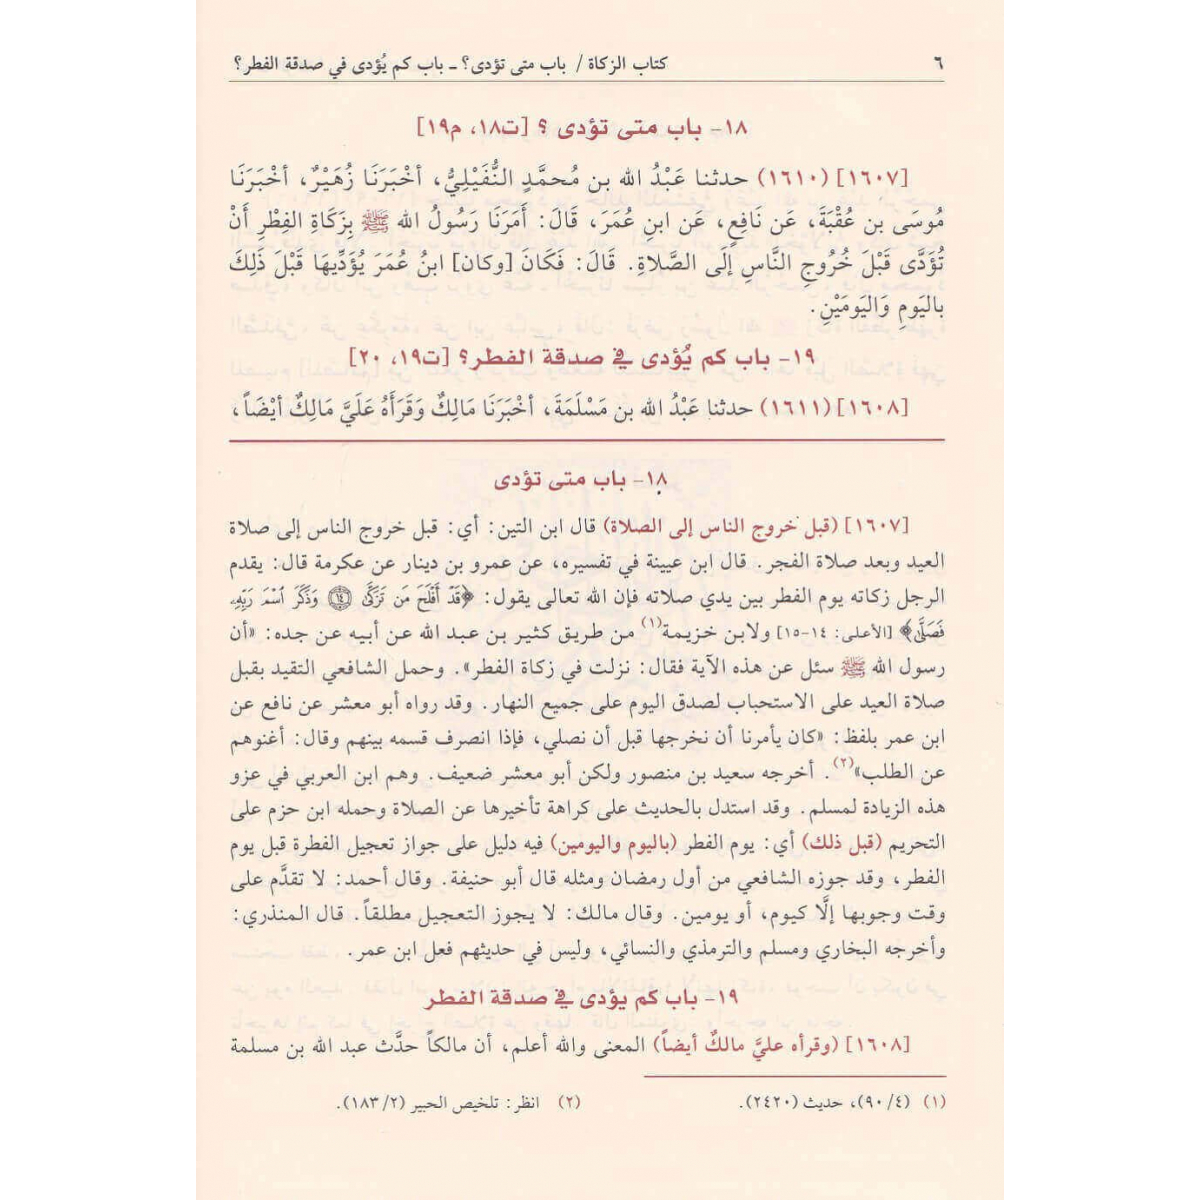 ٦ كتاب الزكاة / باب متى تؤدى؟ ـ باب كم يُؤدى في صدقة الفطر؟
١٨- باب متى تؤدى ؟ [ت١٨، م١٩]
[١٦٠٧] (١٦١٠) حدثنا عَبْدُ الله بن مُحمَّدٍ النُّفَيْلِيُّ، أخْبَرَنَا زُهَيْرٌ، أخْبَرَنَا
مُوسَى بن عُقْبَةَ، عَن نَافِعٍ، عَن ابنِ عُمَرَ، قَالَ: أَمَرَنَا رَسُولُ الله ﷺ بِزَكَاةِ الفِطْرِ أَنْ
تُؤَدَّى قَبْلَ خُرُوجِ النَّاسِ إلَى الصَّلاةِ. قَالَ: فَكَانَ [وكان] ابنُ عُمَرَ يُؤَدِّيهَا قَبْلَ ذَلِكَ
باليَومِ وَاليَومَيْنِ.
١٩- باب كم يُؤدى في صدقة الفطر؟ [ت١٩، ٢٠]
[١٦٠٨] (١٦١١) حدثنا عَبْدُ الله بن مَسْلَمَةَ، أخْبَرَنَا مَالِكٌ وَقَرَأَهُ عَلَيَّ مَالِكٌ أيْضَاً،
١٨- باب متى تؤدى
[١٦٠٧] (قبل خروج الناس إلى الصلاة) قال ابن التين: أي: قبل خروج الناس إلى صلاة
العيد وبعد صلاة الفجر. قال ابن عيينة في تفسيره، عن عمرو بن دينار عن عكرمة قال: يقدم
الرجل زكاته يوم الفطر بين يدي صلاته فإن الله تعالى يقول: ﴿قَدْ أَفْلَحَ مَن تَزَكَّىٰ ١٤ وَذَكَرَ ٱسْمَ رَبِّهِۦ
فَصَلَّىٰ﴾ [الأعلى: ١٤-١٥] ولابن خزيمة(١) من طريق كثير بن عبد الله عن أبيه عن جده: «أن
رسول الله ﷺ سئل عن هذه الآية فقال: نزلت في زكاة الفطر». وحمل الشافعي التقيد بقبل
صلاة العيد على الاستحباب لصدق اليوم على جميع النهار. وقد رواه أبو معشر عن نافع عن
ابن عمر بلفظ: «كان يأمرنا أن نخرجها قبل أن نصلي، فإذا انصرف قسمه بينهم وقال: أغنوهم
عن الطلب»(٢). أخرجه سعيد بن منصور ولكن أبو معشر ضعيف. وهم ابن العربي في عزو
هذه الزيادة لمسلم. وقد استدل بالحديث على كراهة تأخيرها عن الصلاة وحمله ابن حزم على
التحريم (قبل ذلك) أي: يوم الفطر (باليوم واليومين) فيه دليل على جواز تعجيل الفطرة قبل يوم
الفطر، وقد جوزه الشافعي من أول رمضان ومثله قال أبو حنيفة. وقال أحمد: لا تقدَّم على
وقت وجوبها إلَّا كيوم، أو يومين. وقال مالك: لا يجوز التعجيل مطلقاً. قال المنذري:
وأخرجه البخاري ومسلم والترمذي والنسائي، وليس في حديثهم فعل ابن عمر.
١٩- باب كم يؤدى في صدقة الفطر
[١٦٠٨] (وقرأه عليَّ مالكٌ أيضاً) المعنى والله أعلم، أن مالكاً حدَّث عبد الله بن مسلمة
(١) (٤/ ٩٠)، حديث (٢٤٢٠).
(٢) انظر: تلخيص الحبير (٢/ ١٨٣).